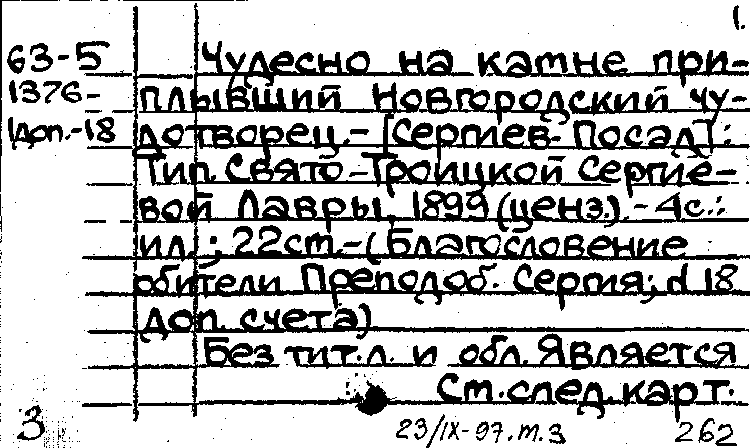 1.
63-5 Чудесно на камне при-
1376- плывший Новгородский чу-
1доп.-18 дотворец.- [Сергиев Посад]:
Тип. Свято-Троицкой Сергие-
вой Лавры, 1899 (ценз.).-4с.:
ил.; 22cm.-(Благословение
обители Преподоб. Сергия; d 18
доп. счета)
Без тит.л. и обл. Является
См.след.карт.
3 23/IX-97.т.3 262